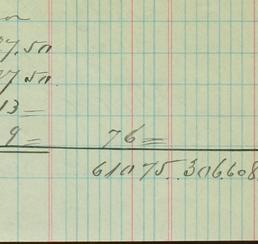 37.50
37.50.
13 =
9 = 76 =
61075.306.608